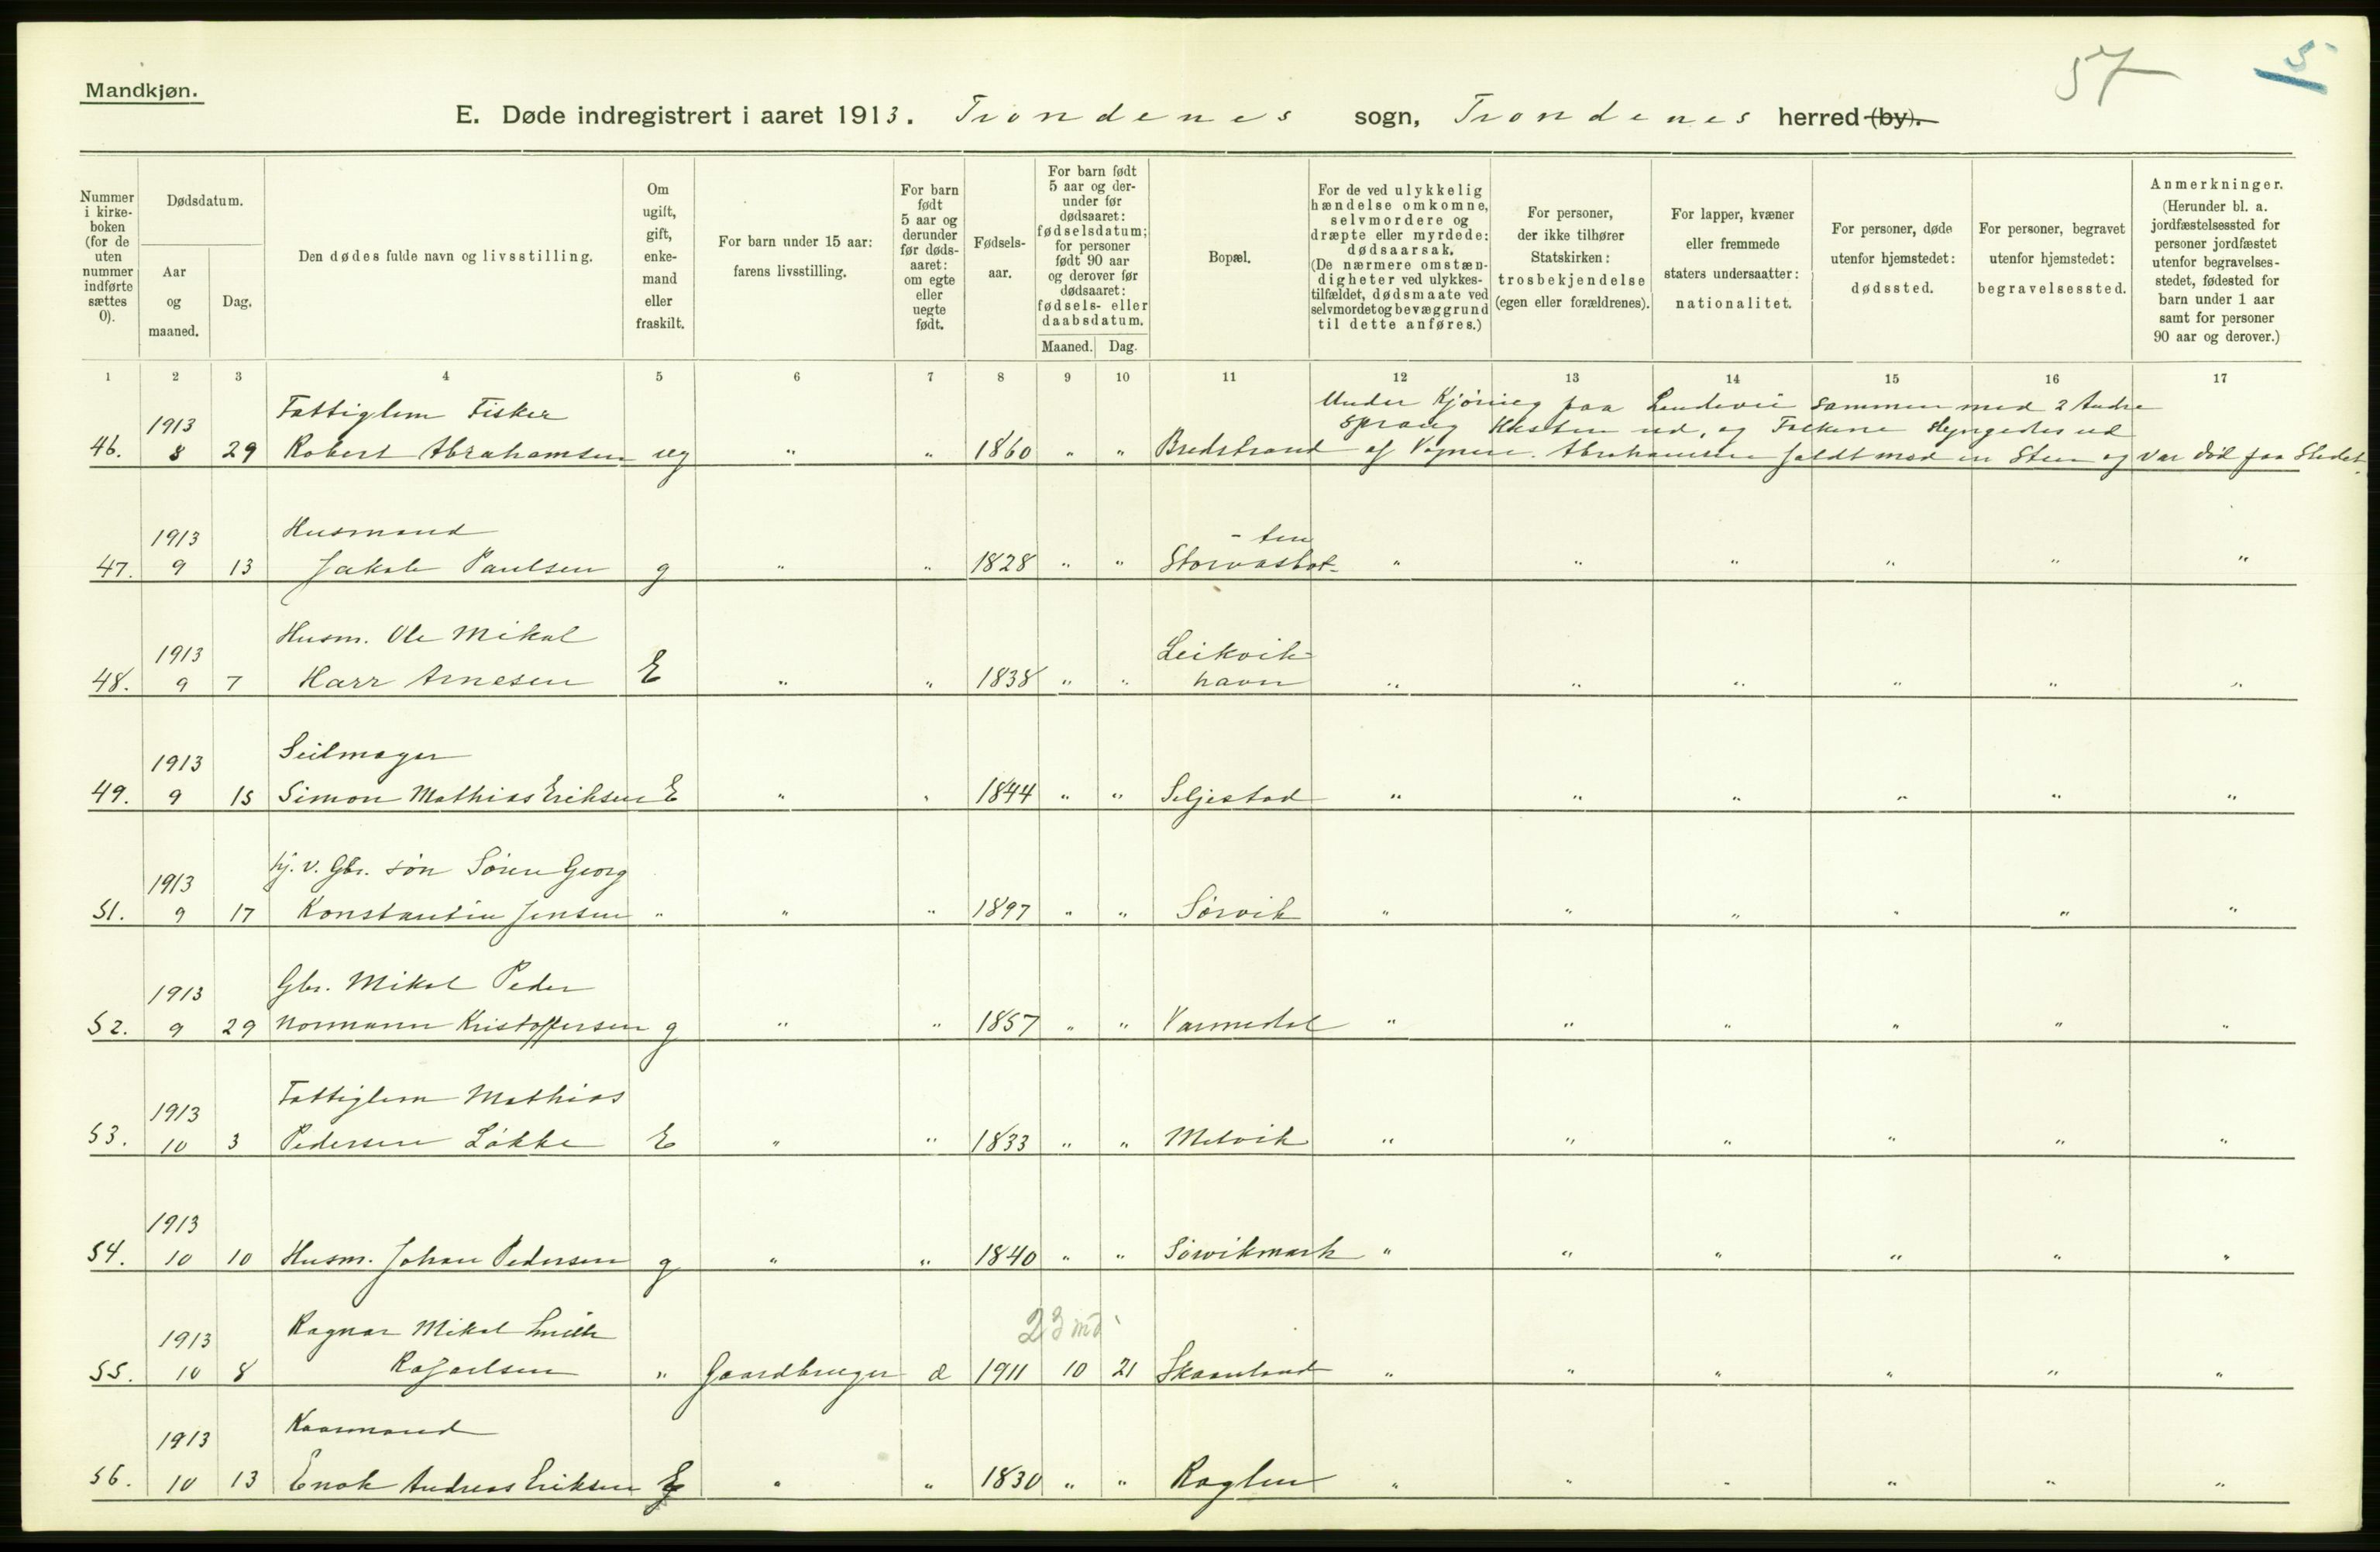 57
5
Mandkjøn.
E. Døde indregistrert i aaret 1913. Trondenes sogn, Trondenes herred (by).
Nummer i kirkeboken (for de uten nummer indførte sættes 0).
Dødsdatum.
Aar og maaned.
Dag.
Den dødes fulde navn og livsstilling.
Om ugift, gift, enkemand eller fraskilt.
For barn under 15 aar: farens livsstilling.
For barn født 5 aar og derunder før dødsaaret: om egte eller uegte født.
Fødselsaar.
For barn født 5 aar og derunder før dødsaaret: fødselsdatum; for personer født 90 aar og derover før dødsaaret: fødsels- eller daabsdatum.
Maaned. Dag.
Bopæl.
For de ved ulykkelig hændelse omkomne, selvmordere og dræpte eller myrdede: dødsaarsak. (De nærmere omstændigheter ved ulykkestilfældet, dødsmaate ved selvmordet og bevæggrund til dette anføres.)
For personer, der ikke tilhører Statskirken: trosbekjendelse (egen eller forældrenes).
For lapper, kvæner eller fremmede staters undersaatter: nationalitet.
For personer, døde utenfor hjemstedet: dødssted.
For personer, begravet utenfor hjemstedet: begravelsessted.
Anmerkninger. (Herunder bl. a. jordfæstelsessted for personer jordfæstet utenfor begravelsesstedet, fødested for barn under 1 aar samt for personer 90 aar og derover.)
1 2 3 4 5 6 7 8 9 10 11 12 13 14 15 16 17
Fattiglem Fisker Under Kjøring paa Landevei sammen med 2 Andre
1913 sprang Hesten ud, og Folkene slyngedes ud
46. 8 29 Robert Abrahamsen ug " " 1860 " " Bredstrand af Vognen. Abrahamsen faldt mod en Sten og var død paa Stedet.
1913 Husmand - ten
47. 9 13 Jakob Paulsen g " " 1828 " " Storvasbot- " " " " " "
1913 Husm. Ole Mikal Leikvik-
48. 9 7 Harr Arnesen E " " 1838 " " havn " " " " " "
1913 Seilmager
49. 9 15 Simon Mathias Eriksen E " " 1844 " " Seljestad " " " " " "
1913 hj. v. Gbr. søn Søren Georg
51. 9 17 Konstantin Jensen " " " 1897 " " Sørvik " " " " " "
1913 Gbr. Mikal Peder
52. 9 29 Normann Kristoffersen g " " 1857 " " Varmedal " " " " " "
1913 Fattiglem Mathias
53. 10 3 Pedersen Løkke E " " 1833 " " Melvik " " " " " "
1913
54. 10 10 Husm. Johan Pedersen g " " 1840 " " Sørvikmark " " " " " "
1913 Ragnar Mikal 23 md
55. 10 8 Rafaelsen " Gaardbruger æ 1911 10 21 Skaanland " " " " " "
1913 Kaarmand
56. 10 13 Enok Andreas Eriksen E " " 1830 " " " " " " " "